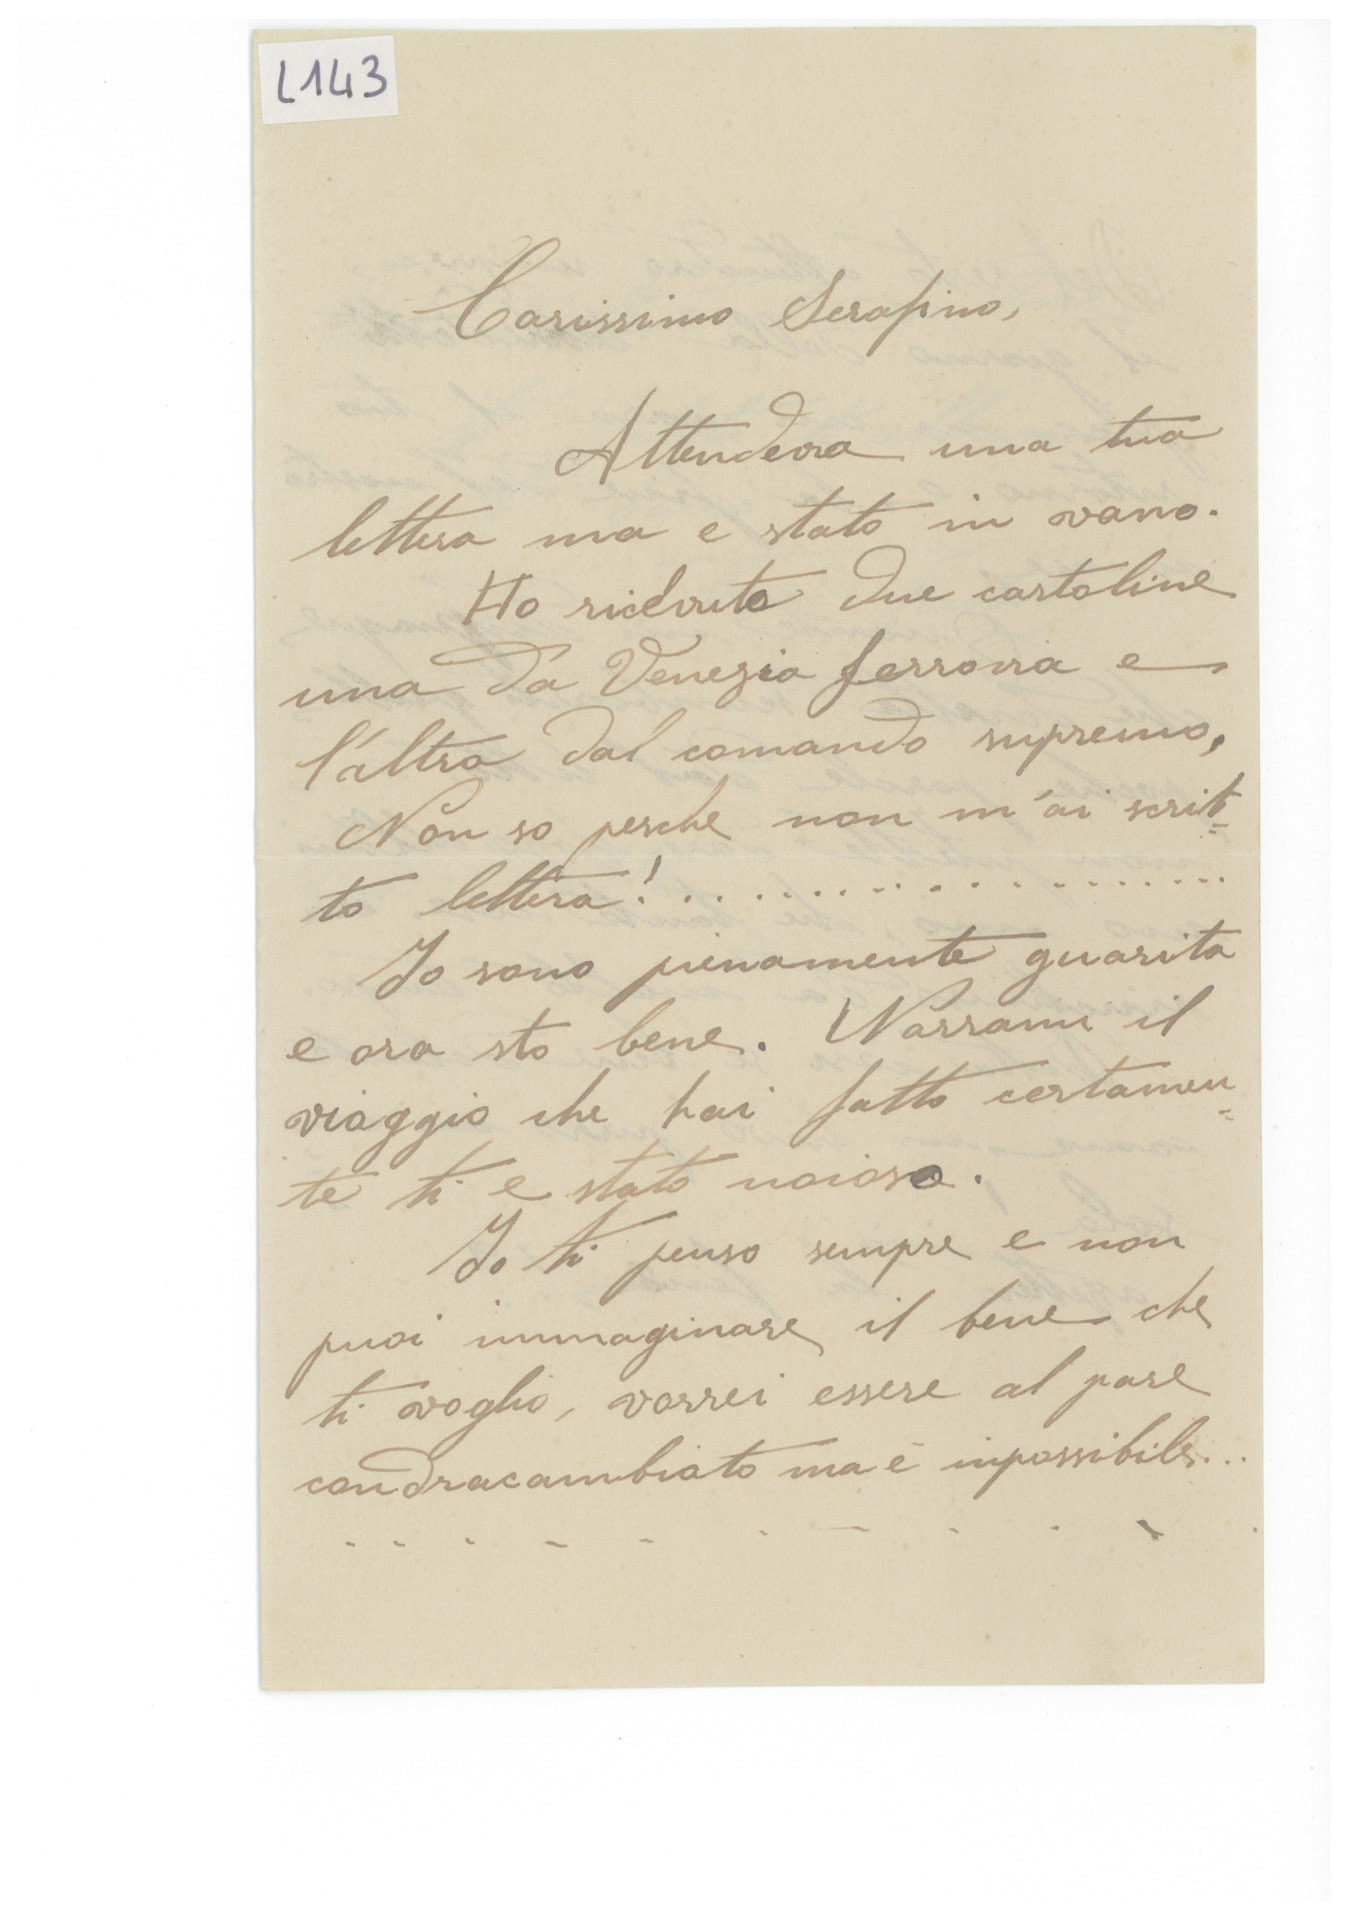 L143
Carissimo Serafino,
Attendeva una tua
lettera ma e stato in vano.
Ho ricevuto due cartoline
una da Venezia ferrovia e
l'altra dal comando supremo,
Non so perche non m'ai scrit=
to lettera! . . . . . . . . . . . . . . . .
Io sono pienamente guarita
e ora sto bene. Narrami il
viaggio che hai fatto certamen=
te ti e stato noioso.
Io ti penso sempre e non
puoi immaginare il bene che
ti voglio, vorrei essere al pare
condracambiato ma è inpossibile...
. . . . . . . . . .